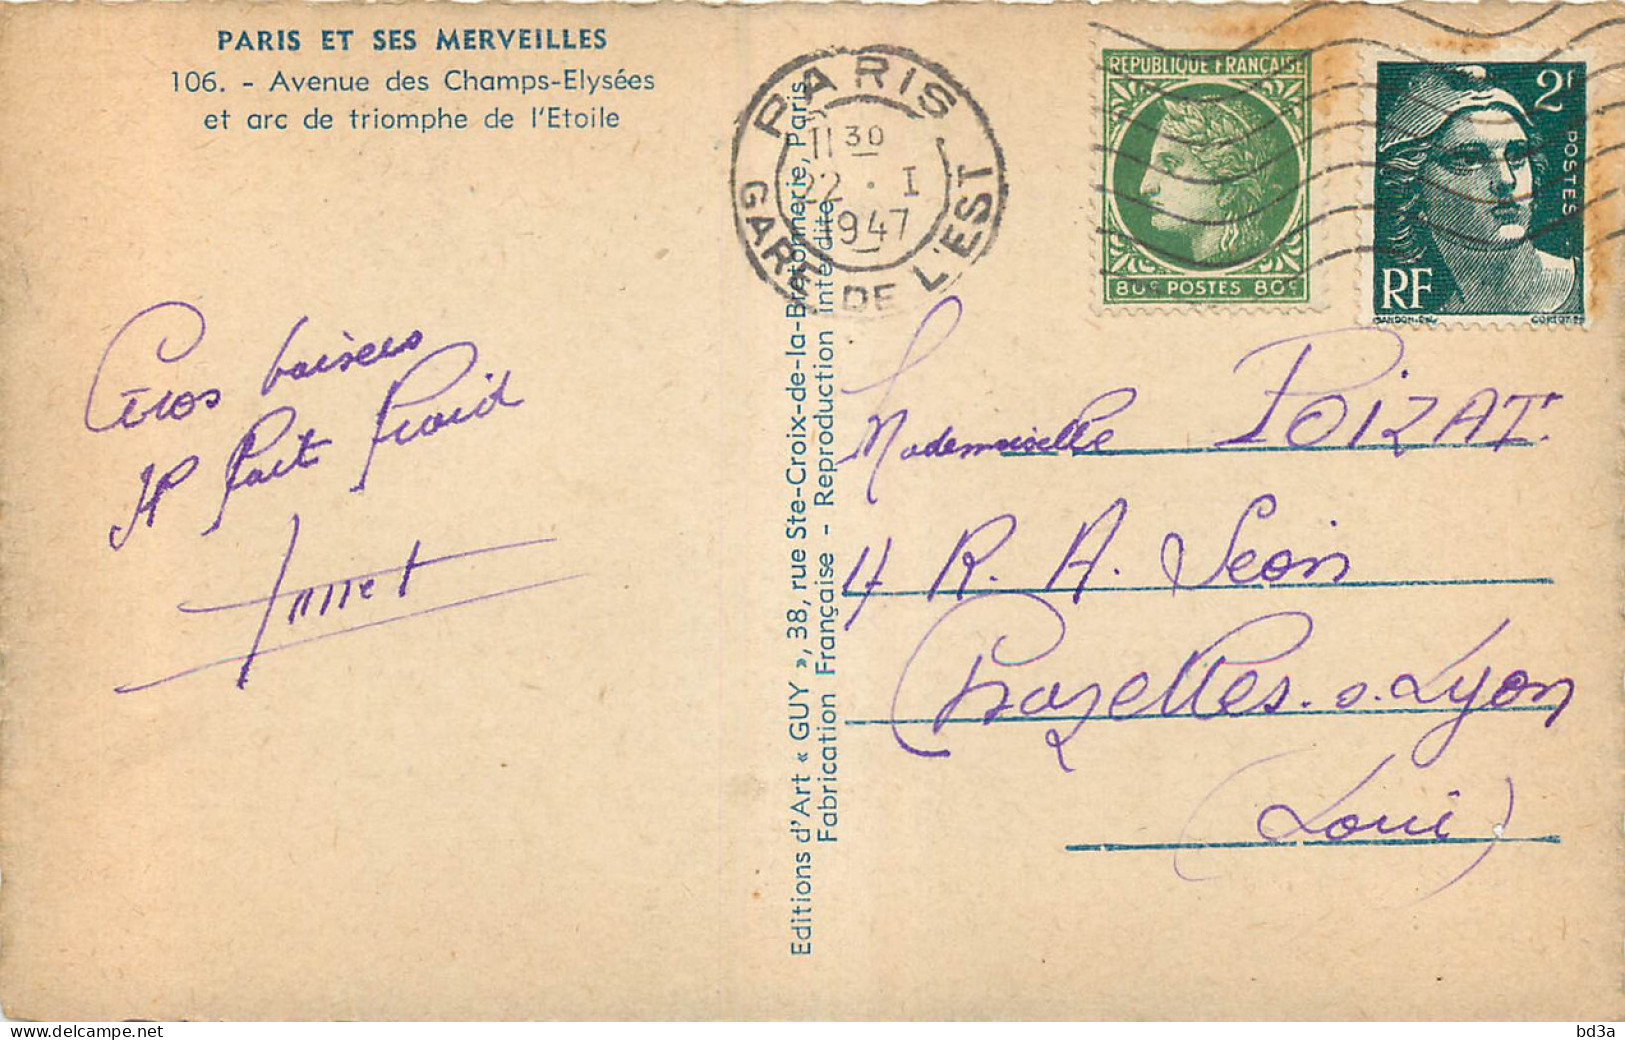 PARIS ET SES MERVEILLES
106. - Avenue des Champs-Elysées
et arc de triomphe de l'Etoile
PARIS
11 30
22 · I
1947
GARE DE L'EST
REPUBLIQUE FRANÇAISE
80c POSTES 80c
2f
POSTES
RF
GANDON-DEL
CORTOT-SC
Gros baisers
Il fait froid
Editions d'Art « GUY », 38, rue Ste-Croix-de-la-Bretonnerie, Paris
Fabrication Française - Reproduction interdite
Mademoiselle POIZAT
4 R. A. Seon
Chazelles. s. Lyon
(Loire)
delcampe.net
bd3a